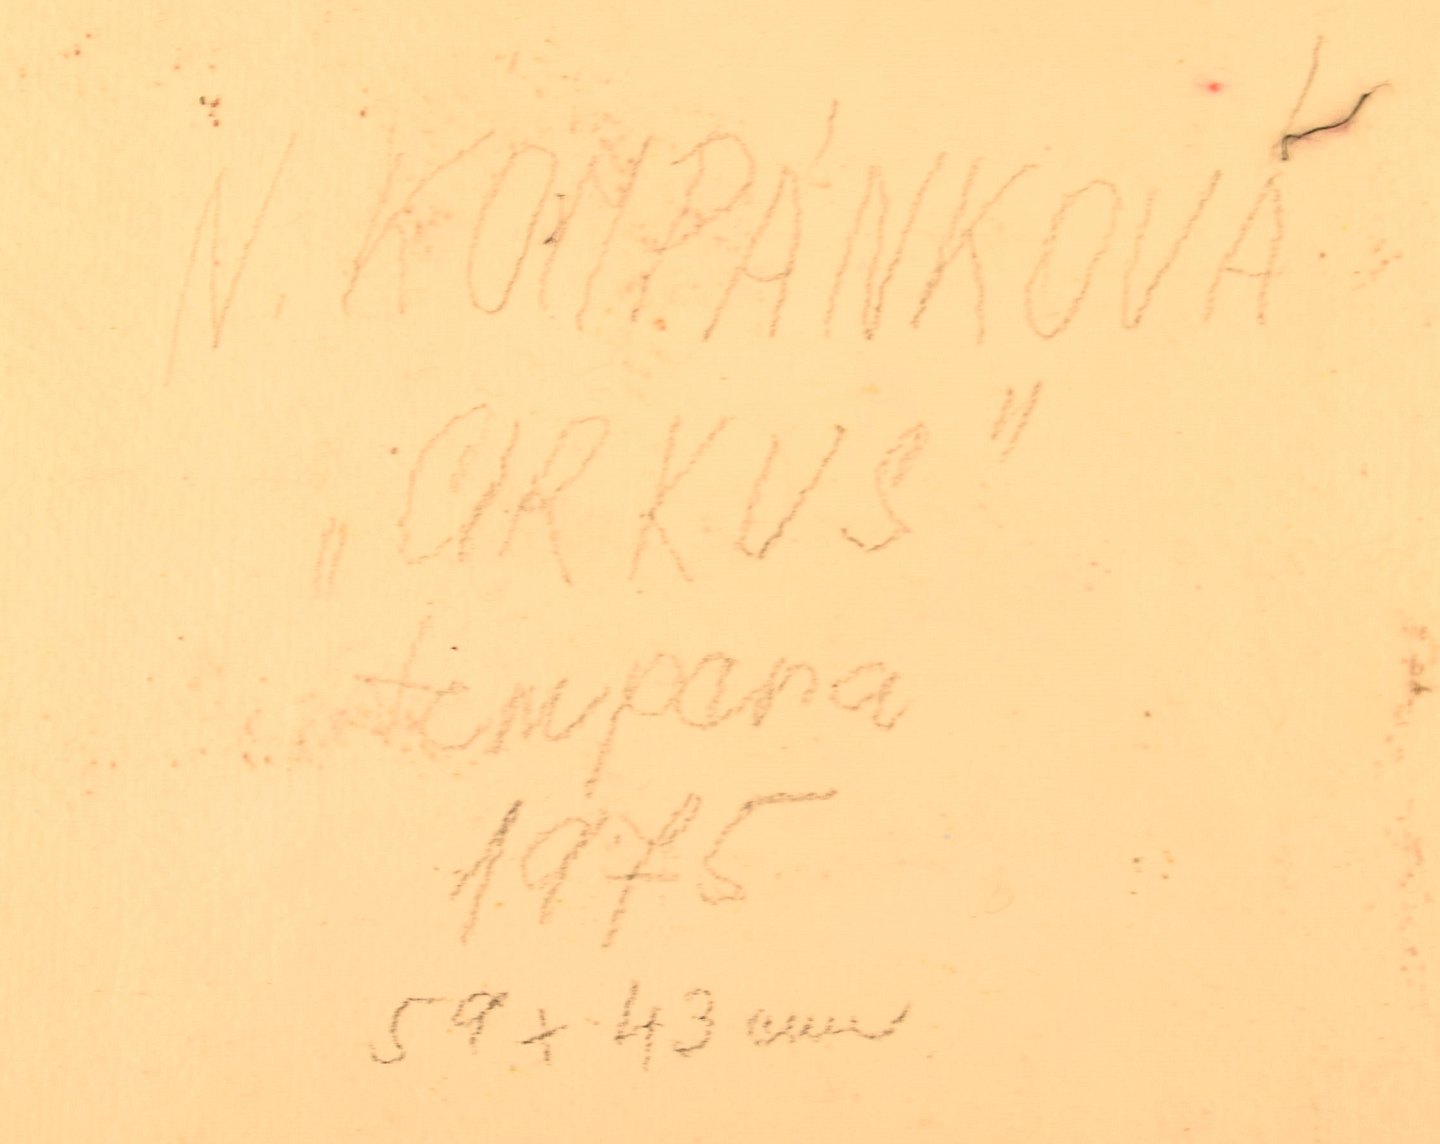 N. KOMPÁNKOVÁ
„CIRKUS"
tempera
1975
59 x 43 cm